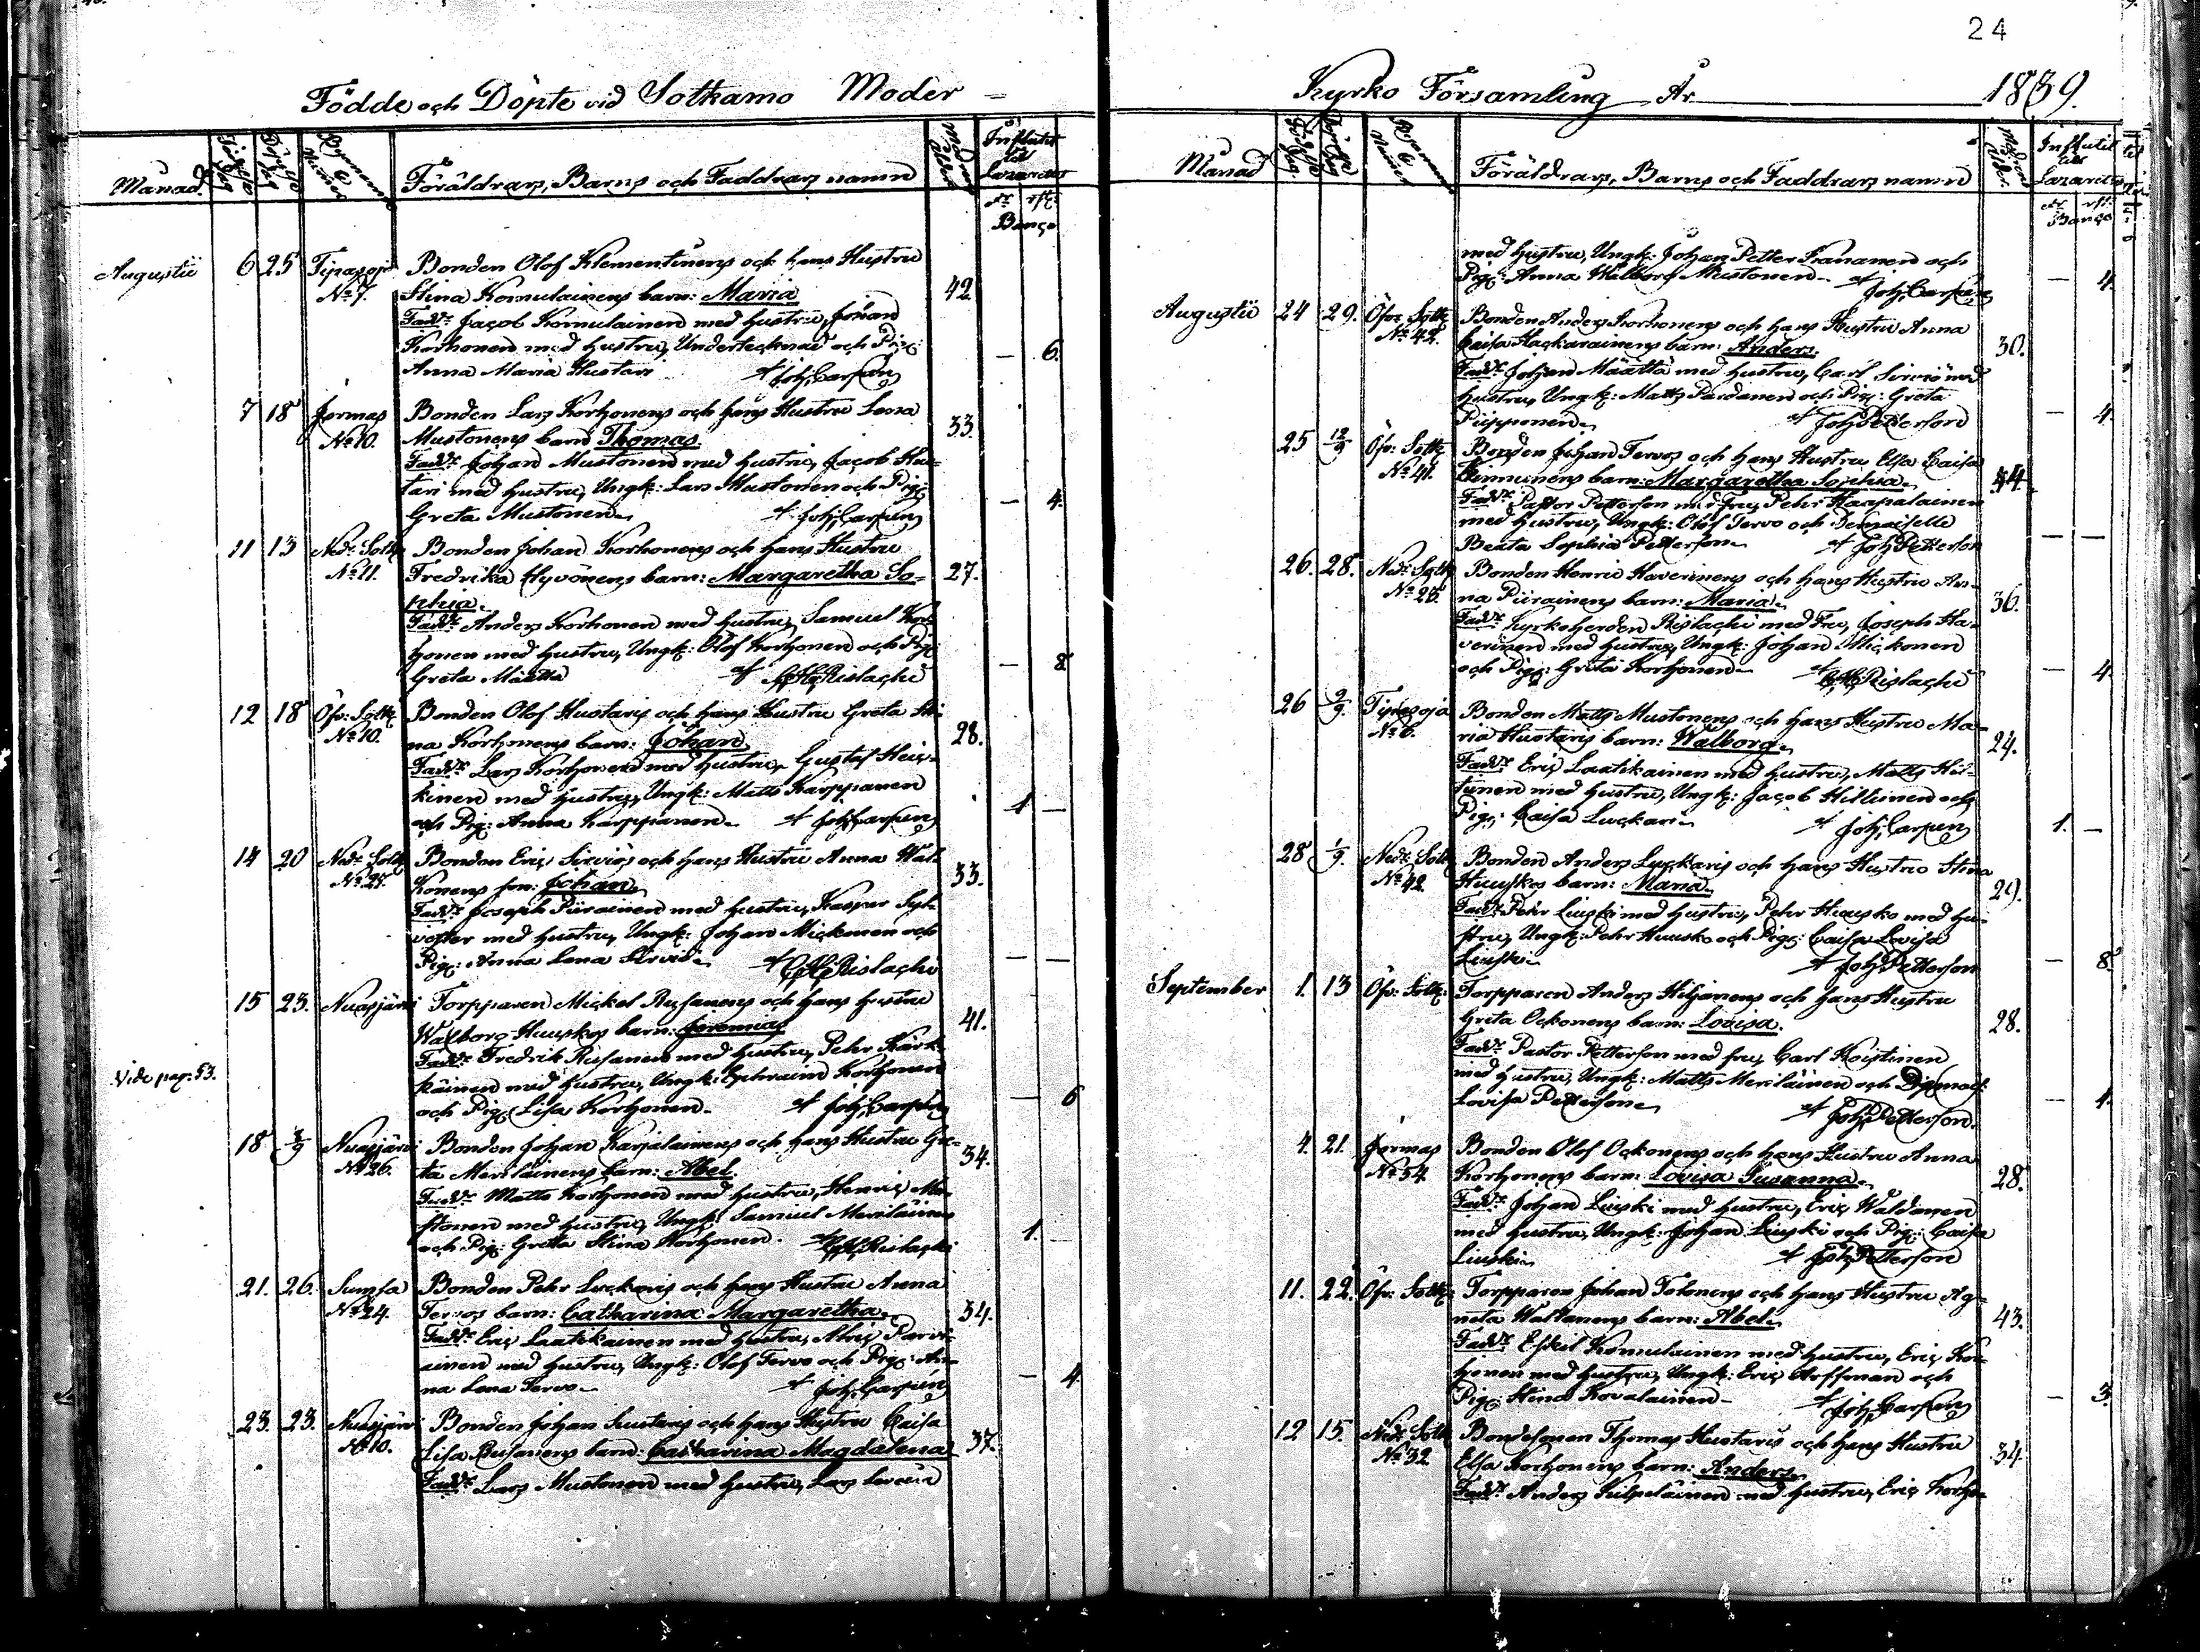 24
Födde och Döpte vid Sotkamo Moder
Månad
Föräldrars, Barns och Faddrars namn
Influtit
til
Lazarettet
Banço
Augustii 6 25 Tipasoja Bonden Olof Klementinens och hans Hustru
No 7. Stina Komulainens barn: Maria 42
Fadd: Jacob Komulainen med hustru, Johan
Korhonen med hustru, Undertecknad och Pig:
Anna Maria Hustari Joh. Carpen — 6.
7 18 Jormas Bonden Lars Korhonens och hans Hustru Lena
No 10. Mustonens barn Thomas. 33.
Fadd: Johan Mustonen med hustru, Jacob Hus-
tari med hustru, Ungk: Lars Mustonen och Pig:
Greta Mustonen Joh. Carpen — 4.
11 13 Ned: Sotk Bonden Johan Korhonens och hans Hustru
No 11. Fredrika Hyvönens barn: Margaretha So- 27.
phia.
Fadd: Anders Korhonen med hustru, Samuel Kor-
honen med hustru, Ungk: Olof Korhonen och Pig:
Greta Määttä Rislachi — 8
12 18 Öfv: Sotk Bonden Olof Hustaris och hans Hustru Greta Sti-
No 10. na Korhonens barn: Johan 28.
Fadd: Lars Korhonen med hustru, Gustaf Hei-
kinen med hustru, Ungk: Matts Karppanen
och Pig: Anna Karppanen Joh. Carpen 1 —
14 20 Ned: Sotk Bonden Eric Sirviös och hans Hustru Anna
No 25. Konens son: Johan 33.
Fadd: Joseph Piirainen med hustru, Kasper Syl-
vester med hustru, Ungk: Johan Mickonen och
Pig: Anna Lena Sirviö Rislachi — —
15 23. Nuasjärvi Torpparen Mickel Rusanens och hans hustru
Walborg Huuskos barn: Jeremias 41.
Fadd: Fredrik Rusanen med hustru, Pehr Kärk-
Vide pag: 53.
käinen med hustru, Ungk: Ephraim Korhonen
och Pig: Lisa Korhonen Joh. Carpen — 6
18 3/9 Nuasjärvi Bonden Johan Karjalainens och hans Hustru Gre-
No 26. ta Meriläinens barn: Abel 34.
Fadd: Matts Korhonen med hustru, Henric Mu-
stonen med hustru, Ungk: Samuel Meriläinen
och Pig: Greta Stina Korhonen. Rislachi 1. —
21. 26. Sumsa Bonden Pehr Luckaris och hans Hustru Anna
No 24. Tervos barn: Catharina Margaretha 34.
Fadd: Eric Laatikainen med hustru, Alric Parvi-
ainen med hustru, Ungk: Olof Tervo och Pig: An-
na Lena Tervo Joh. Carpen — 4
23. 23. Nuasjärvi Bonden Johan Hustaris och hans Hustru Caisa
No 10. Lisa Rusanens barn: Catharina Magdalena 37.
Fadd: Lars Mustonen med hustru, Lars
Kyrko Församling År 1839.
Månad
Föräldrars, Barns och Faddrars namn
Influtit
till
Lazarettet
Banço
med hustru, Ungk: Johan Petter Kananen och
Pig: Anna Walborg Mustonen Joh. Carpen — 4.
Augustii 24 29. Öfv: Sotk Bonden Anders Korhonens och hans Hustru Anna
No 42. Caisa Hackarainens barn: Anders. 30.
Fadd: Johan Määttä med hustru, Carl Sirviö med
hustru, Ungk: Matts Pardanen och Pig: Greta
Piipponen Joh Petterson — 4.
25 12/9 Öfv: Sotk Bonden Johan Tervos och hans Hustru Elsa Caisa
No 41. Kinnunens barn: Margaretha Sophia 44.
Fadd: Pastor Petterson med Fru, Pehr Haapalainen
med hustru, Ungk: Olof Tervo och Demoiselle
Beata Sophia Petterson Joh Petterson — —
26. 28. Ned: Sotk Bonden Henric Haverinens och hans Hustru An-
No 25. na Piirainens barn: Maria 36.
Fadd: Kyrkoherden Rislachi med Fru, Joseph Ha-
verinen med hustru, Ungk: Johan Mickonen
och Pig: Greta Korhonen Rislachi — 4.
26 2/9. Tipasoja Bonden Matts Mustonens och hans Hustru Ma-
No 6. ria Hustaris barn: Walborg. 24.
Fadd: Eric Laatikainen med hustru, Matts Hil-
tunen med hustru, Ungk: Jacob Hiltunen och
Pig: Caisa Luckari Joh. Carpen 1. —
28 1/9. Ned: Sotk Bonden Anders Luckaris och hans Hustru Stina
No 42. Huuskos barn: Maria 29.
Fadd: Pehr Liuski med hustru, Pehr Huusko med hu-
stru, Ungk: Pehr Huusko och Pig: Caisa Lovisa
Liuski Joh Petterson — 8.
September 1. 13 Öfv: Sotk: Torpparen Anders Hiljanens och hans Hustru
Greta Ockonens barn: Lovisa. 28.
Fadd: Pastor Petterson med fru, Carl Koistinen
med hustru, Ungk: Matts Meriläinen och
Lovisa Petterson Joh Petterson. — 1.
4. 21. Jormas Bonden Olof Ockonens och hans Hustru Anna
No 54. Korhonens barn: Lovisa Susanna 28.
Fadd: Johan Liuski med hustru, Eric Waldanen
med hustru, Ungk: Johan Liuski och Pig: Caisa
Liuski Joh Petterson
11. 22. Öfv: Sotk: Torpparen Johan Tolonens och hans Hustru Ag-
neta Waltanens barn: Abel. 43.
Fadd: Eskil Komulainen med hustru, Eric Kor-
honen med hustru, Ungk: Eric Arffman och
Pig: Stina Kovalainen Joh. Carpen — 3.
12 15. Ned: Sotk Bondesonen Thomas Hustaris och hans Hustru
No 32 Elsa Korhonens barn: Anders 34.
Fadd: Anders Kilpeläinen med hustru, Eric Korho-